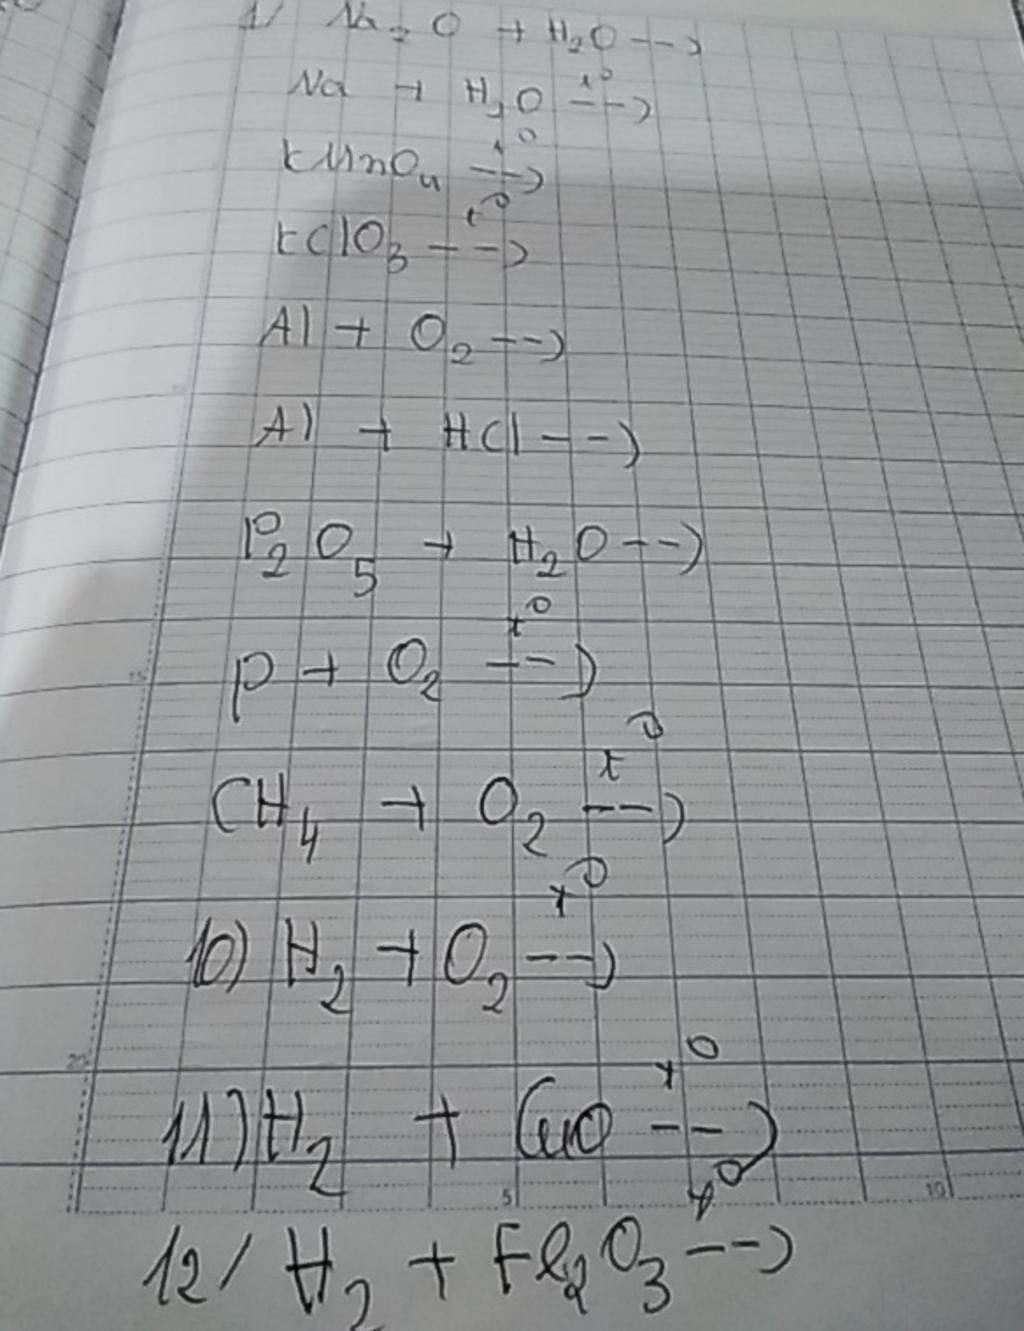 1/ Na₂O + H₂O -->
Na + H₂O --> t⁰
KMnO₄ --> t⁰
KClO₃ --> t⁰
Al + O₂ -->
Al + HCl -->
P₂O₅ + H₂O -->
P + O₂ --> t⁰
CH₄ + O₂ --> t⁰
10) H₂ + O₂ --> t⁰
11) H₂ + CuO --> t⁰
12/ H₂ + Fe₂O₃ --> t⁰
15
20
5
10